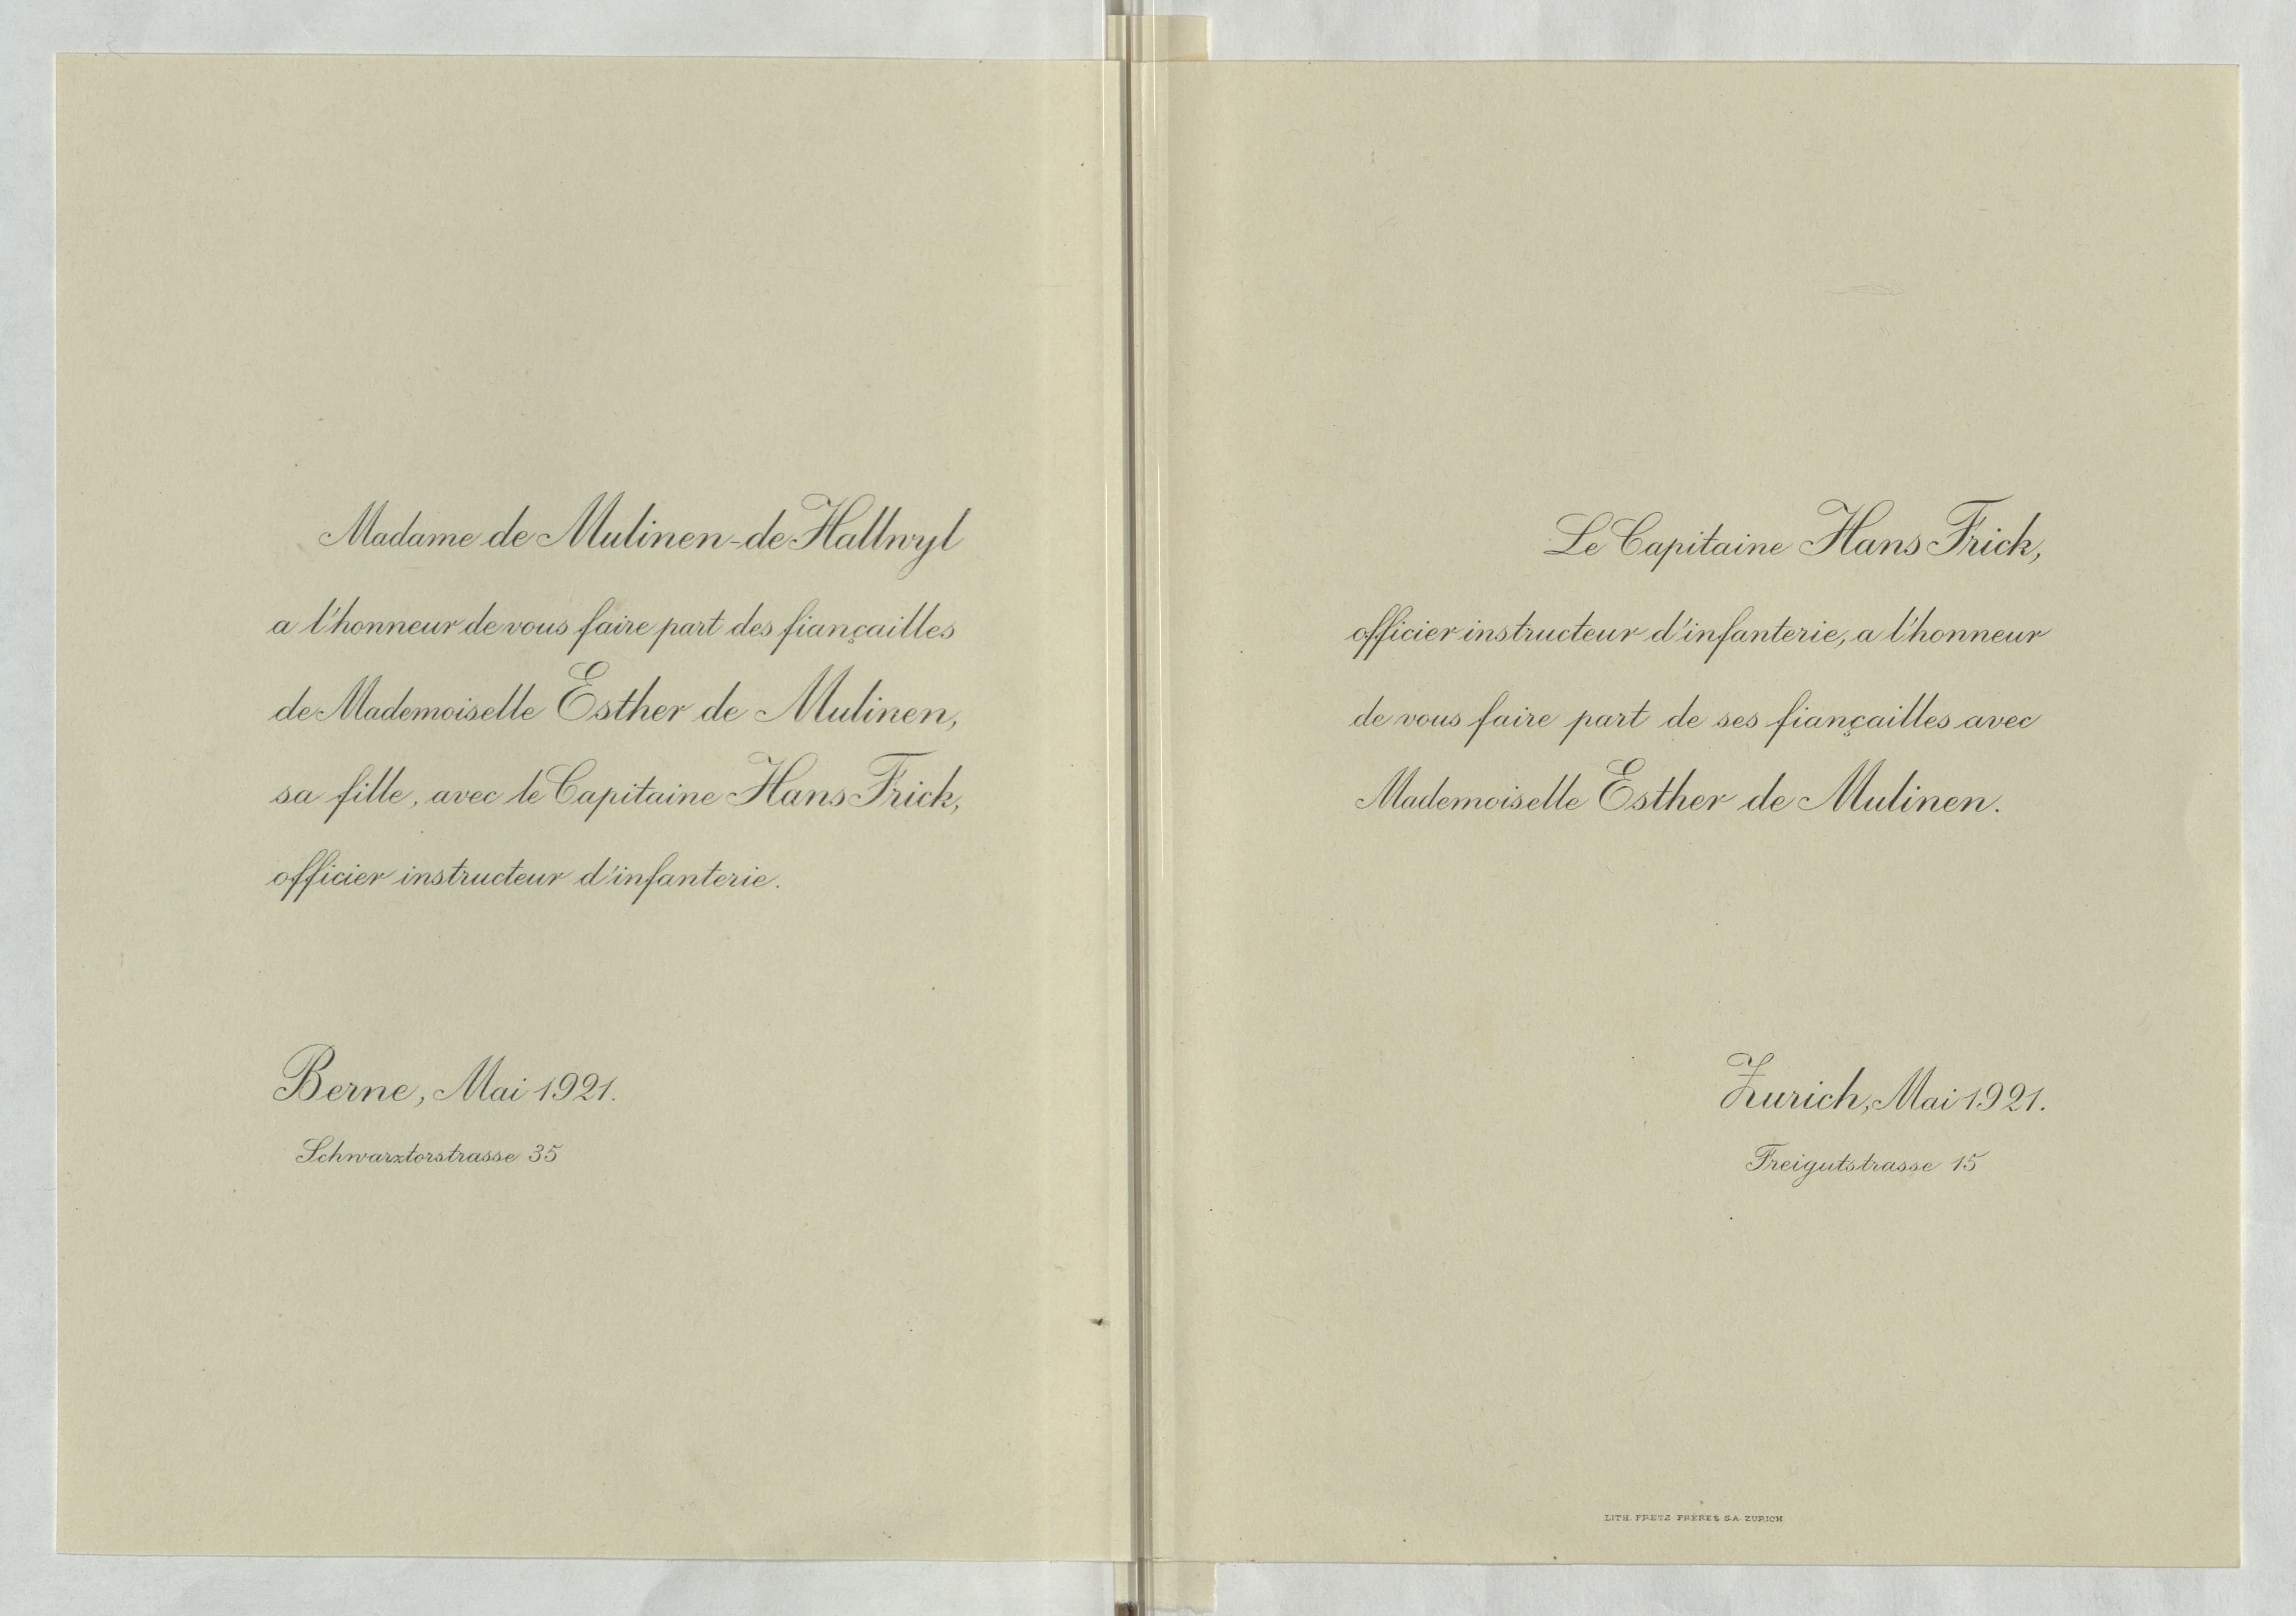 Madame de Mulinen-de Hallwyl
a l'honneur de vous faire part des fiançailles
de Mademoiselle Esther de Mulinen,
sa fille, avec le Capitaine Hans Frick,
officier instructeur d'infanterie.
Berne, Mai 1921.
Schwarztorstrasse 35
Le Capitaine Hans Frick,
officier instructeur d'infanterie, a l'honneur
de vous faire part de ses fiançailles avec
Mademoiselle Esther de Mulinen.
Zurich, Mai 1921.
Freigutstrasse 15
LITH. FRETZ FRÈRES S.A. ZURICH